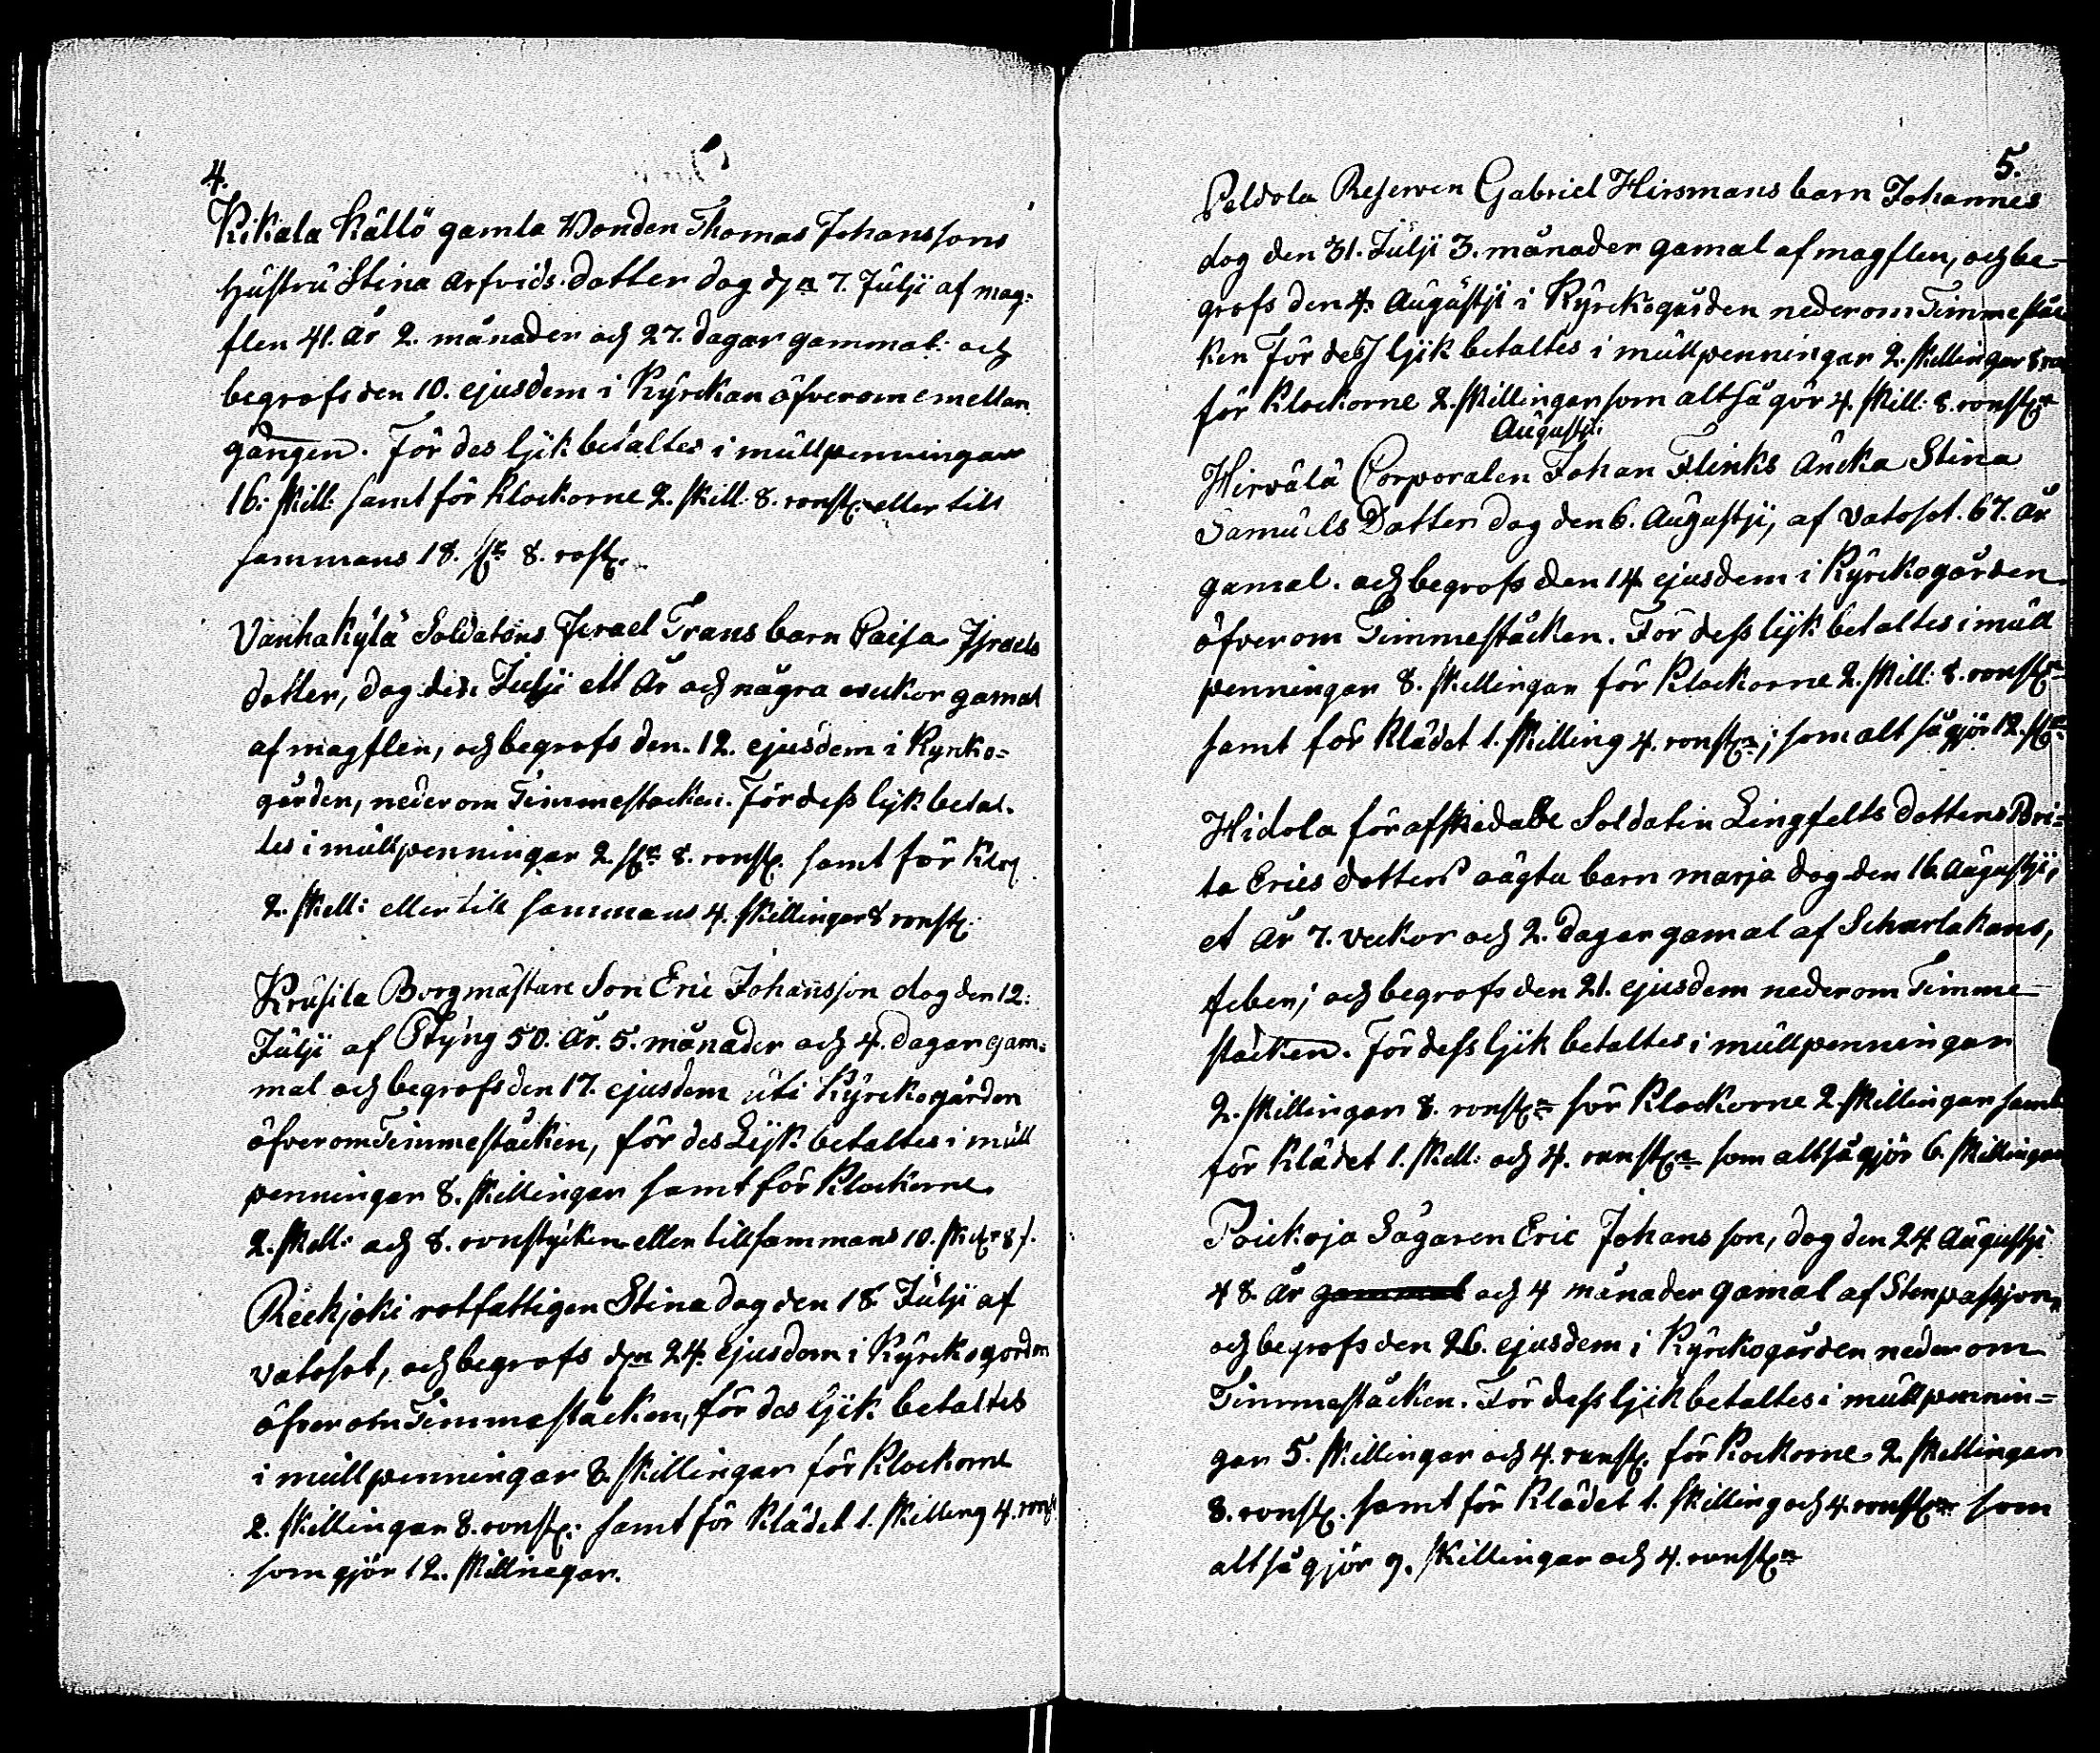 4.
Kikala Källö gamla Bonden Thomas Johanssons
hustru Stina Arfvids dotter dog den 7. Julii af mag-
flen 41. år 2. månader och 27. dagar gammal. och
begrofs den 10. ejusdem i Kyrckan öfverom emellan
gången. För des lijk betaltes i mullpenningar
16: skill: samt för klockorne 2. skill: 8. ronst: eller till
sammans 18. sk: 8. rost.
Vanhakylä Soldatens Israel Trans barn Caisa Israels
dotter, dog den Julii ett år och några wekor gamal
af magflen, och begrofs den. 12. ejusdem i Kyrko-
gården, nederom Timmestacken. För dess lijk betal-
tes i mullpenningar 2. skr 8. ronst. samt för kloc
2. skell: eller till sammans 4. skillingar 8 ronst.
Krusila Borgmästare Son Eric Johansson dog den 12.
Julii af Styng 50. år. 5. månader och 4. dagar gam-
mal och begrofs den 17. ejusdem uti Kyrckogården
öfverom Timmestäcken, för des Lijk betaltes i mull
penningar 8. skillingar samt för klockorne
2. skell: och 8. ronstycken eller tillsammans 10. sk: 8 r.
Reckjoki rotfattigen Stina dog den 18. Julii af
vatosot, och begrofs den 24. ejusdem i Kyrckogorden
öfver om Timmestäcken, för des lijk betaltes
i mullpenningar 8. skillingar för klockorne
2. skillingar 8. ronst: samt för Klädet 1. skilling 4. ronst
som gjör 12. skillnegar.
5.
Peldola Reserven Gabriel Hirsmans barn Johannes
dog den 31. Julii 3. månader gamal af magflen, och be-
grofs den 4. Augustji i Kyrckogården nederom Timmestäc
ken För dess lijk betaltes i mullpenningar 2. skellingar 8 ron
för klockorne 2. skillingar som altså gör 4. skill: 8. ronst
Augustji.
Hirvälä Corporalen Johan Flinks äncka Stina
Samuels Dotter dog den 6. Augustji, af vatosot. 67. år
gamal. och begrofs den 14. ejusdem i Kyrckogården
öfverom Timmestäcken. För dess lijk betaltes i mull
penningar 8. skillingar för klockorne 2. skill: 8. ronst
samt för Klädet 1. skilling 4. ronst; som alt så gjör 12. sk
Hidola förafskedade Soldaten Lingfelts dotters Bri-
ta Erics dotters oägta barn marja dog den 16. Augustji,
et år 7. veckor och 2. dagar gamal af Scharlakans,
feber; och begrofs den 21. ejusdem nederom Timme
stäcken. För dess lijk betaltes i mullpenningar
2. skillingar 8. ronst för klockorne 2 skillingar samt
för Klädet 1. skell: och 4. ronst som altså gjör 6. skillingar
Poickoja Sågaren Eric Johansson, dog den 24. Augustji
48. år gammal och 4 månader gamal af Stenpassjon
och begrofs den 26. ejusdem i Kyrckogården nederom
Timmestäcken. För dess lijk betaltes i mullpennin-
gar 5. skillingar och 4. ronst. för kockorne 2. skellingar
8. ronst. samt för Klädet 1. skilling och 4. ronst som
altså gjör 9. skillingar och 4. ronst